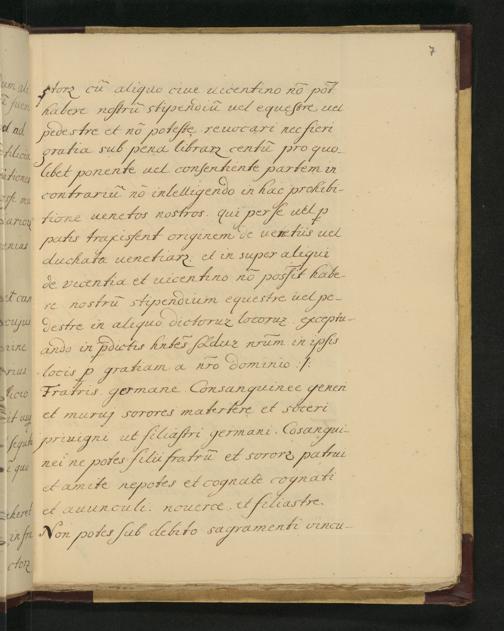 7
storꝝ cū aliquo ciue uicentino nō pōt
habere nostrū stipendiū uel equestre uel
pedestre et nō potest reuocari nec fieri
gratia sub pena librarꝝ centū pro quo-
libet ponente uel consentiente partem in
contrariū nō intelligendo in hac prohibi-
tione uenetos nostros. qui per se uel p
patis traxissent originem de venetiis uel
duchatu uenetiarꝝ et in super aliqui
de vicentia et uicentino nō possit habe-
re nostrū stipendium equestre uel pe-
destre in aliquo dictoruꝝ locoruꝝ exceptu-
ando in p̄dictis hn̄tes nr̄um in ipsis
locis p gratiam a nr̄o dominio ./.
Fratris germane Consanguinee generi
et murus sorores matertere et soceri
priuigni ut filiastri germani. Cosangui-
nei ne potes filii fratrū et sororꝝ patrui
et amite nepotes et cognate cognati
et auunculi. nouerce. et filiastre.
Non potes sub debito sagramenti vincu-